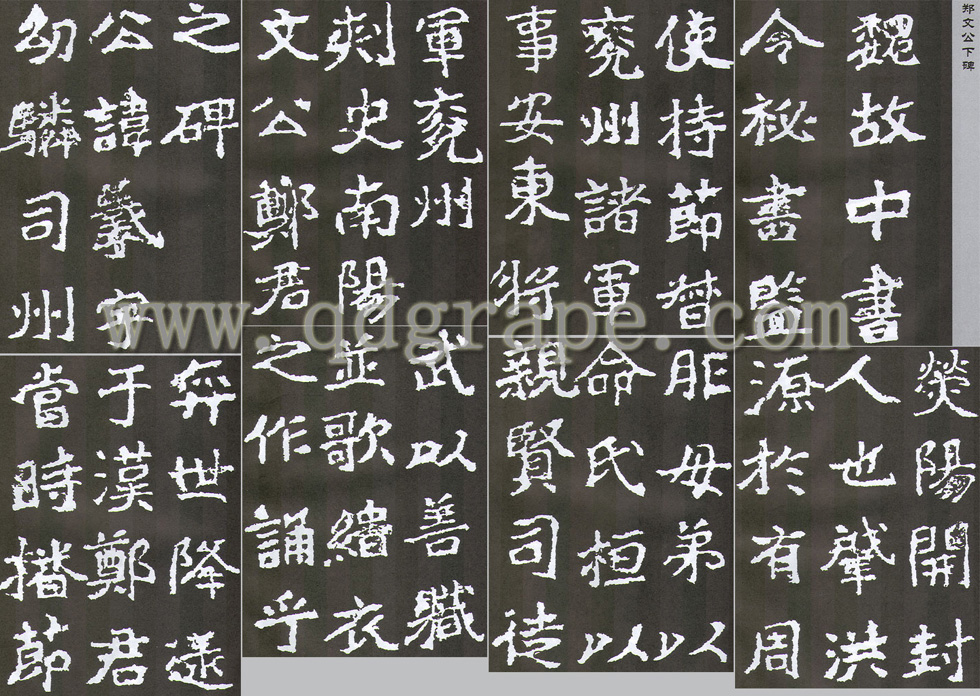 郑文公下碑
魏故中書
令秘書監
使持節督
兗州諸軍
事安東將
軍兗州
刺史南陽
文公鄭君
之碑
公諱羲字
幼驎司州
熒陽開封
人也肇洪
源於有周
胙母弟以
命氏桓以
親賢司徒
武以善職
並歌緇衣
之作誦乎
弈世降逮
于漢鄭君
當時播節
www.qdgrape.com